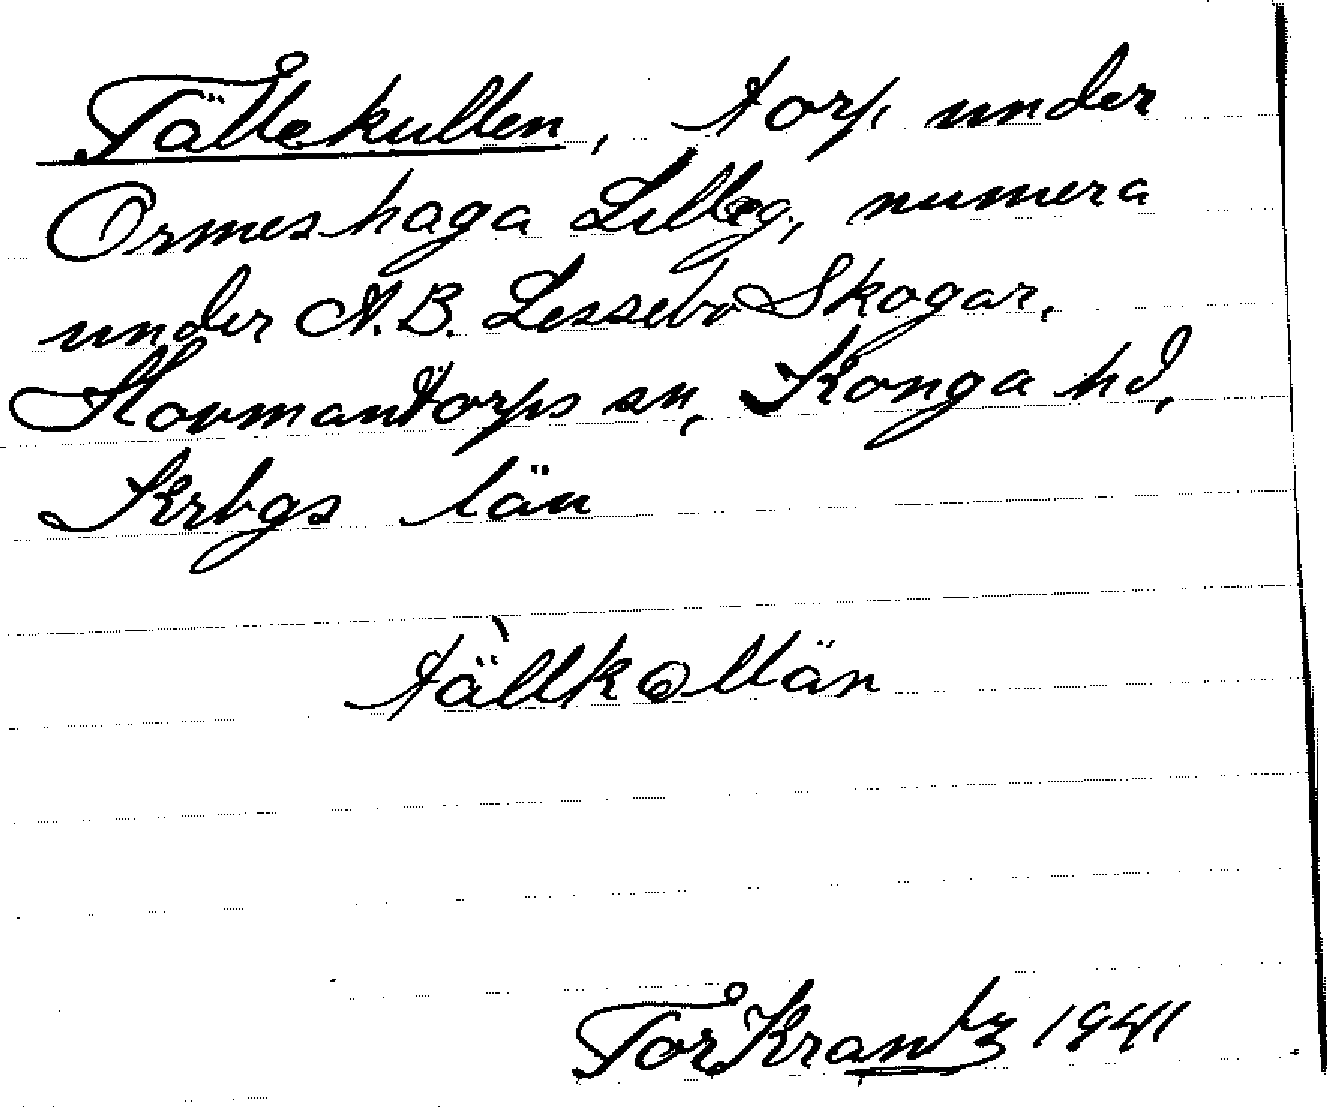 Tällekullen, torp under
Ormeshaga Lilleg., numera
under A.B. Lessebo Skogar,
Hovmantorps sn, Konga hd,
Krbgs län
tä̀llkollän
Tor Krantz 1941